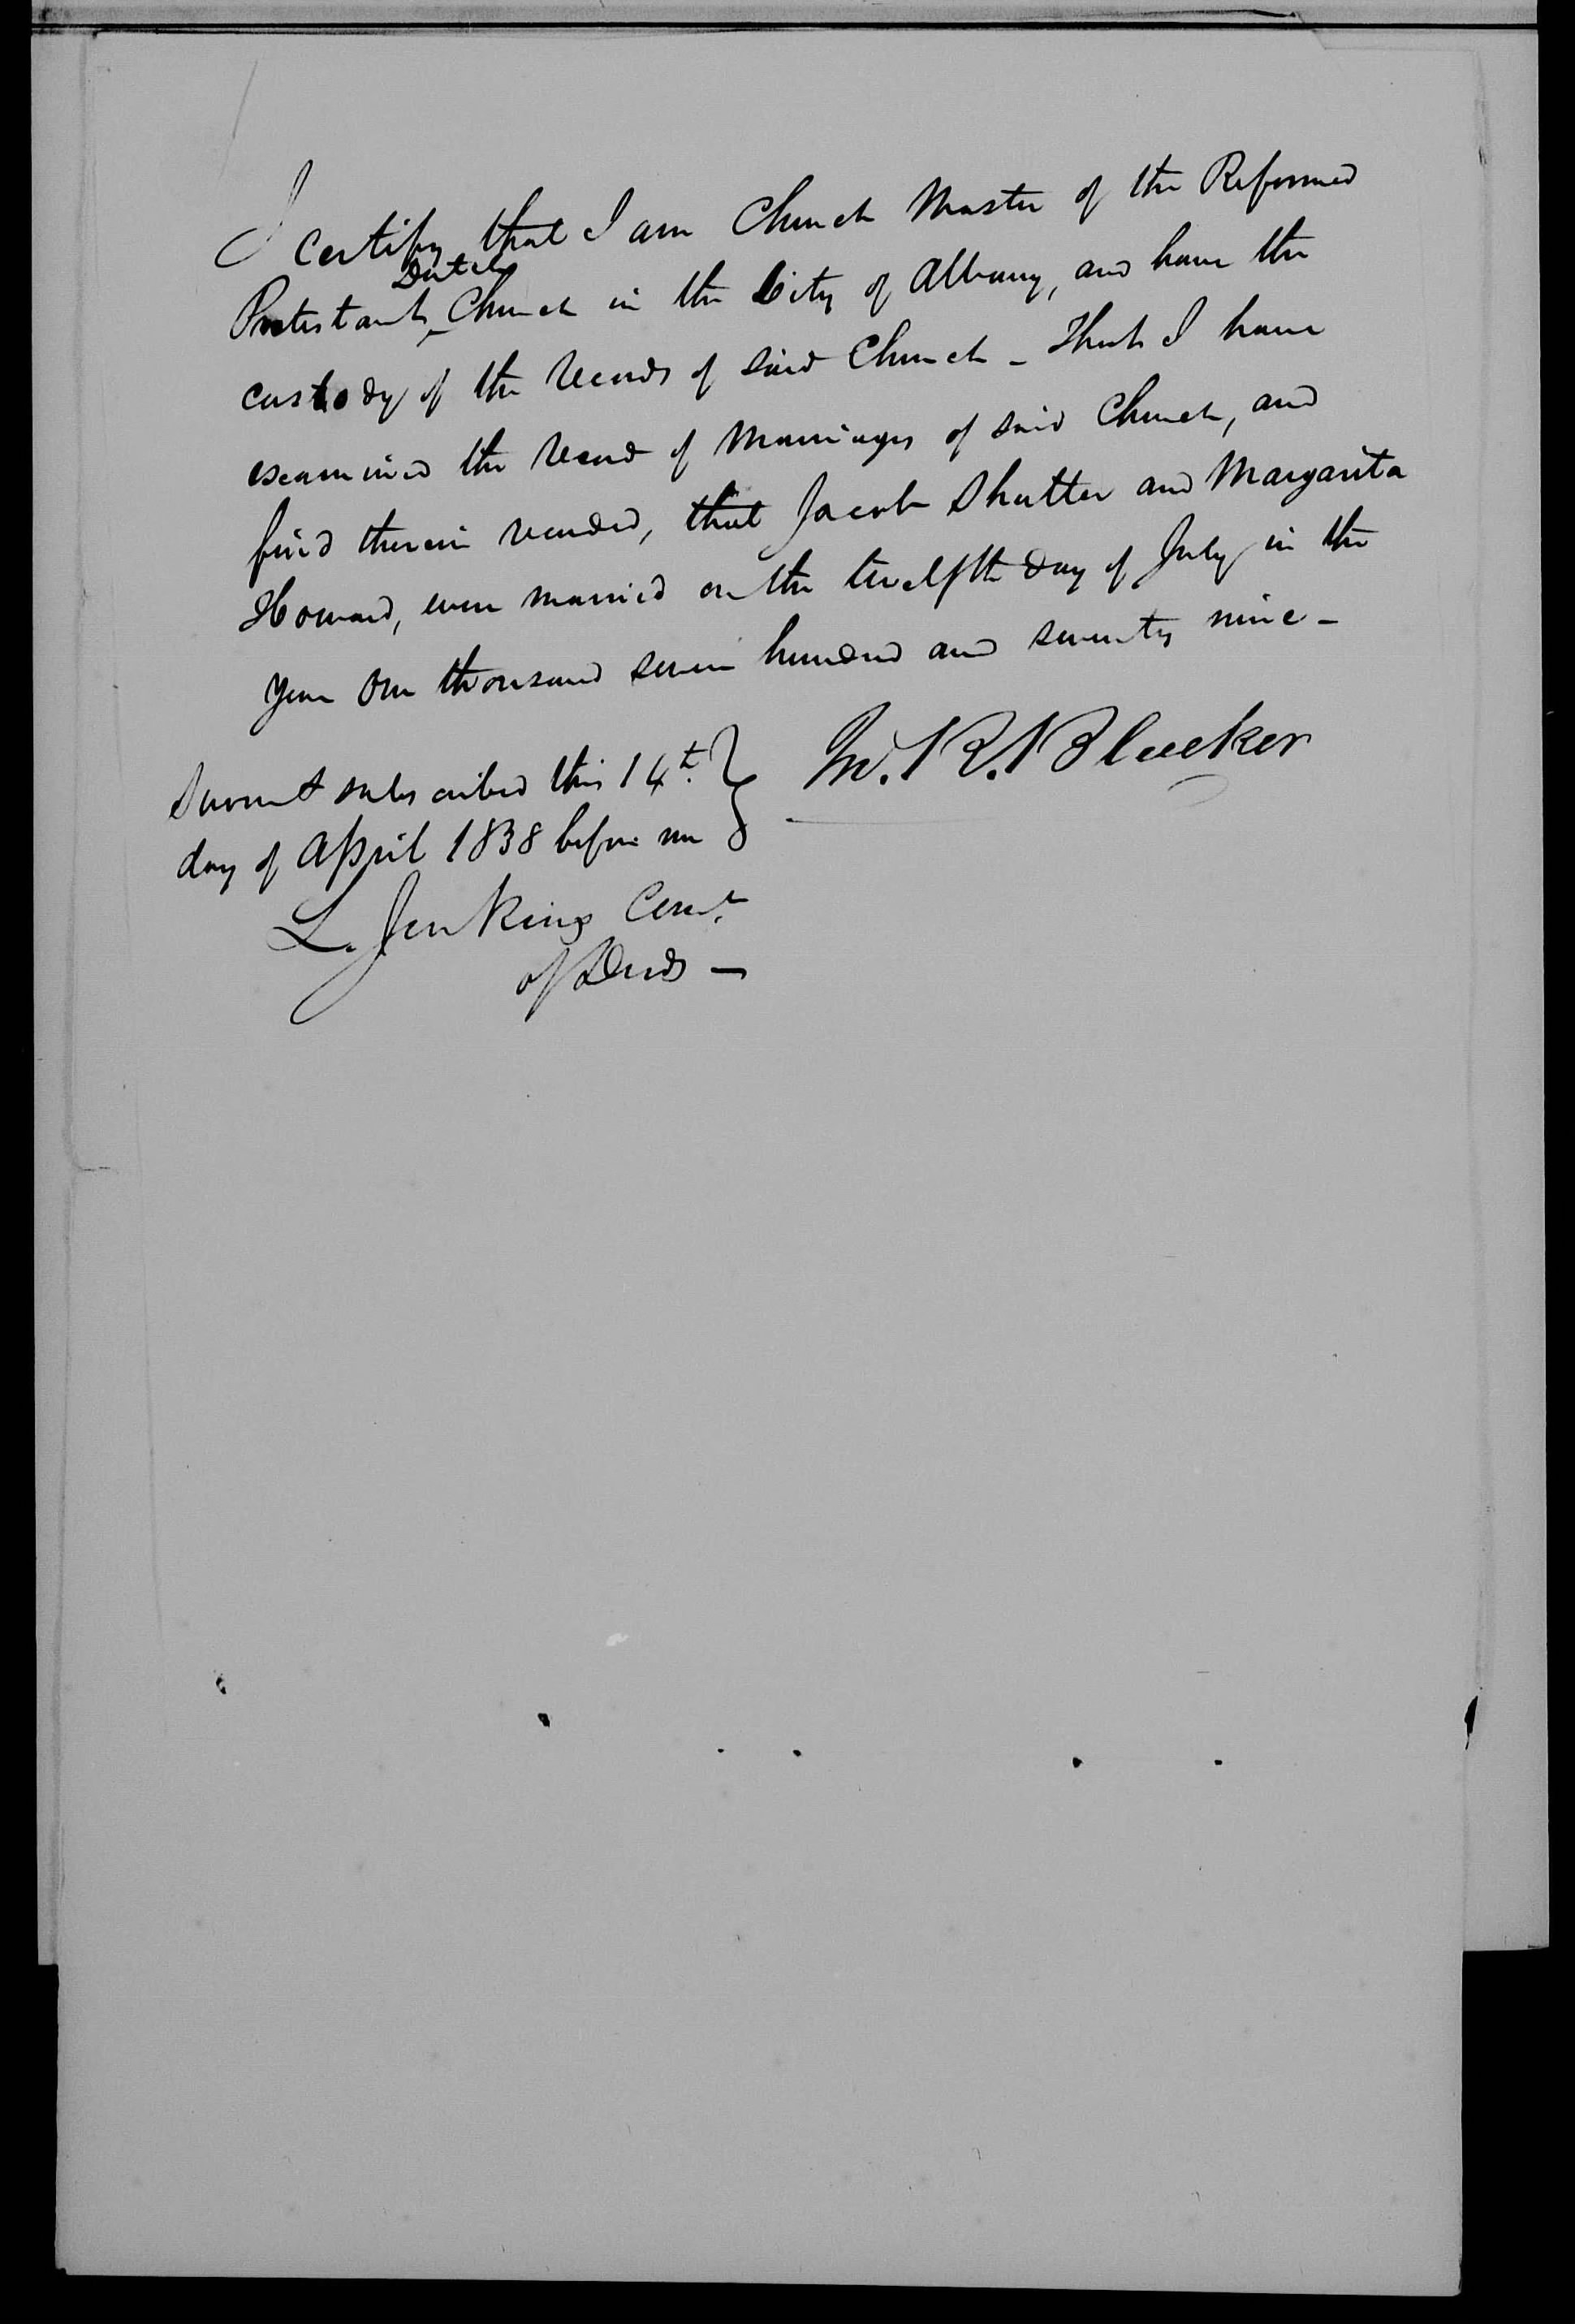 I certify that I am Church Master of the Reformed
Dutch
Protestant ^ Church in the City of Albany, and have the
custody of the records of said Church - That I have
examined the record of Marriages of said Church, and
find therein recorded, that Jacob Shutter and Margarita
Howard, were married on the twelfth day of July in the
year One thousand seven hundred and seventy nine -
Sworn & subscribed this 14th. } M. R. Bleecker
day of April 1838 before me
L. Jenkins Comr.
of Deeds -